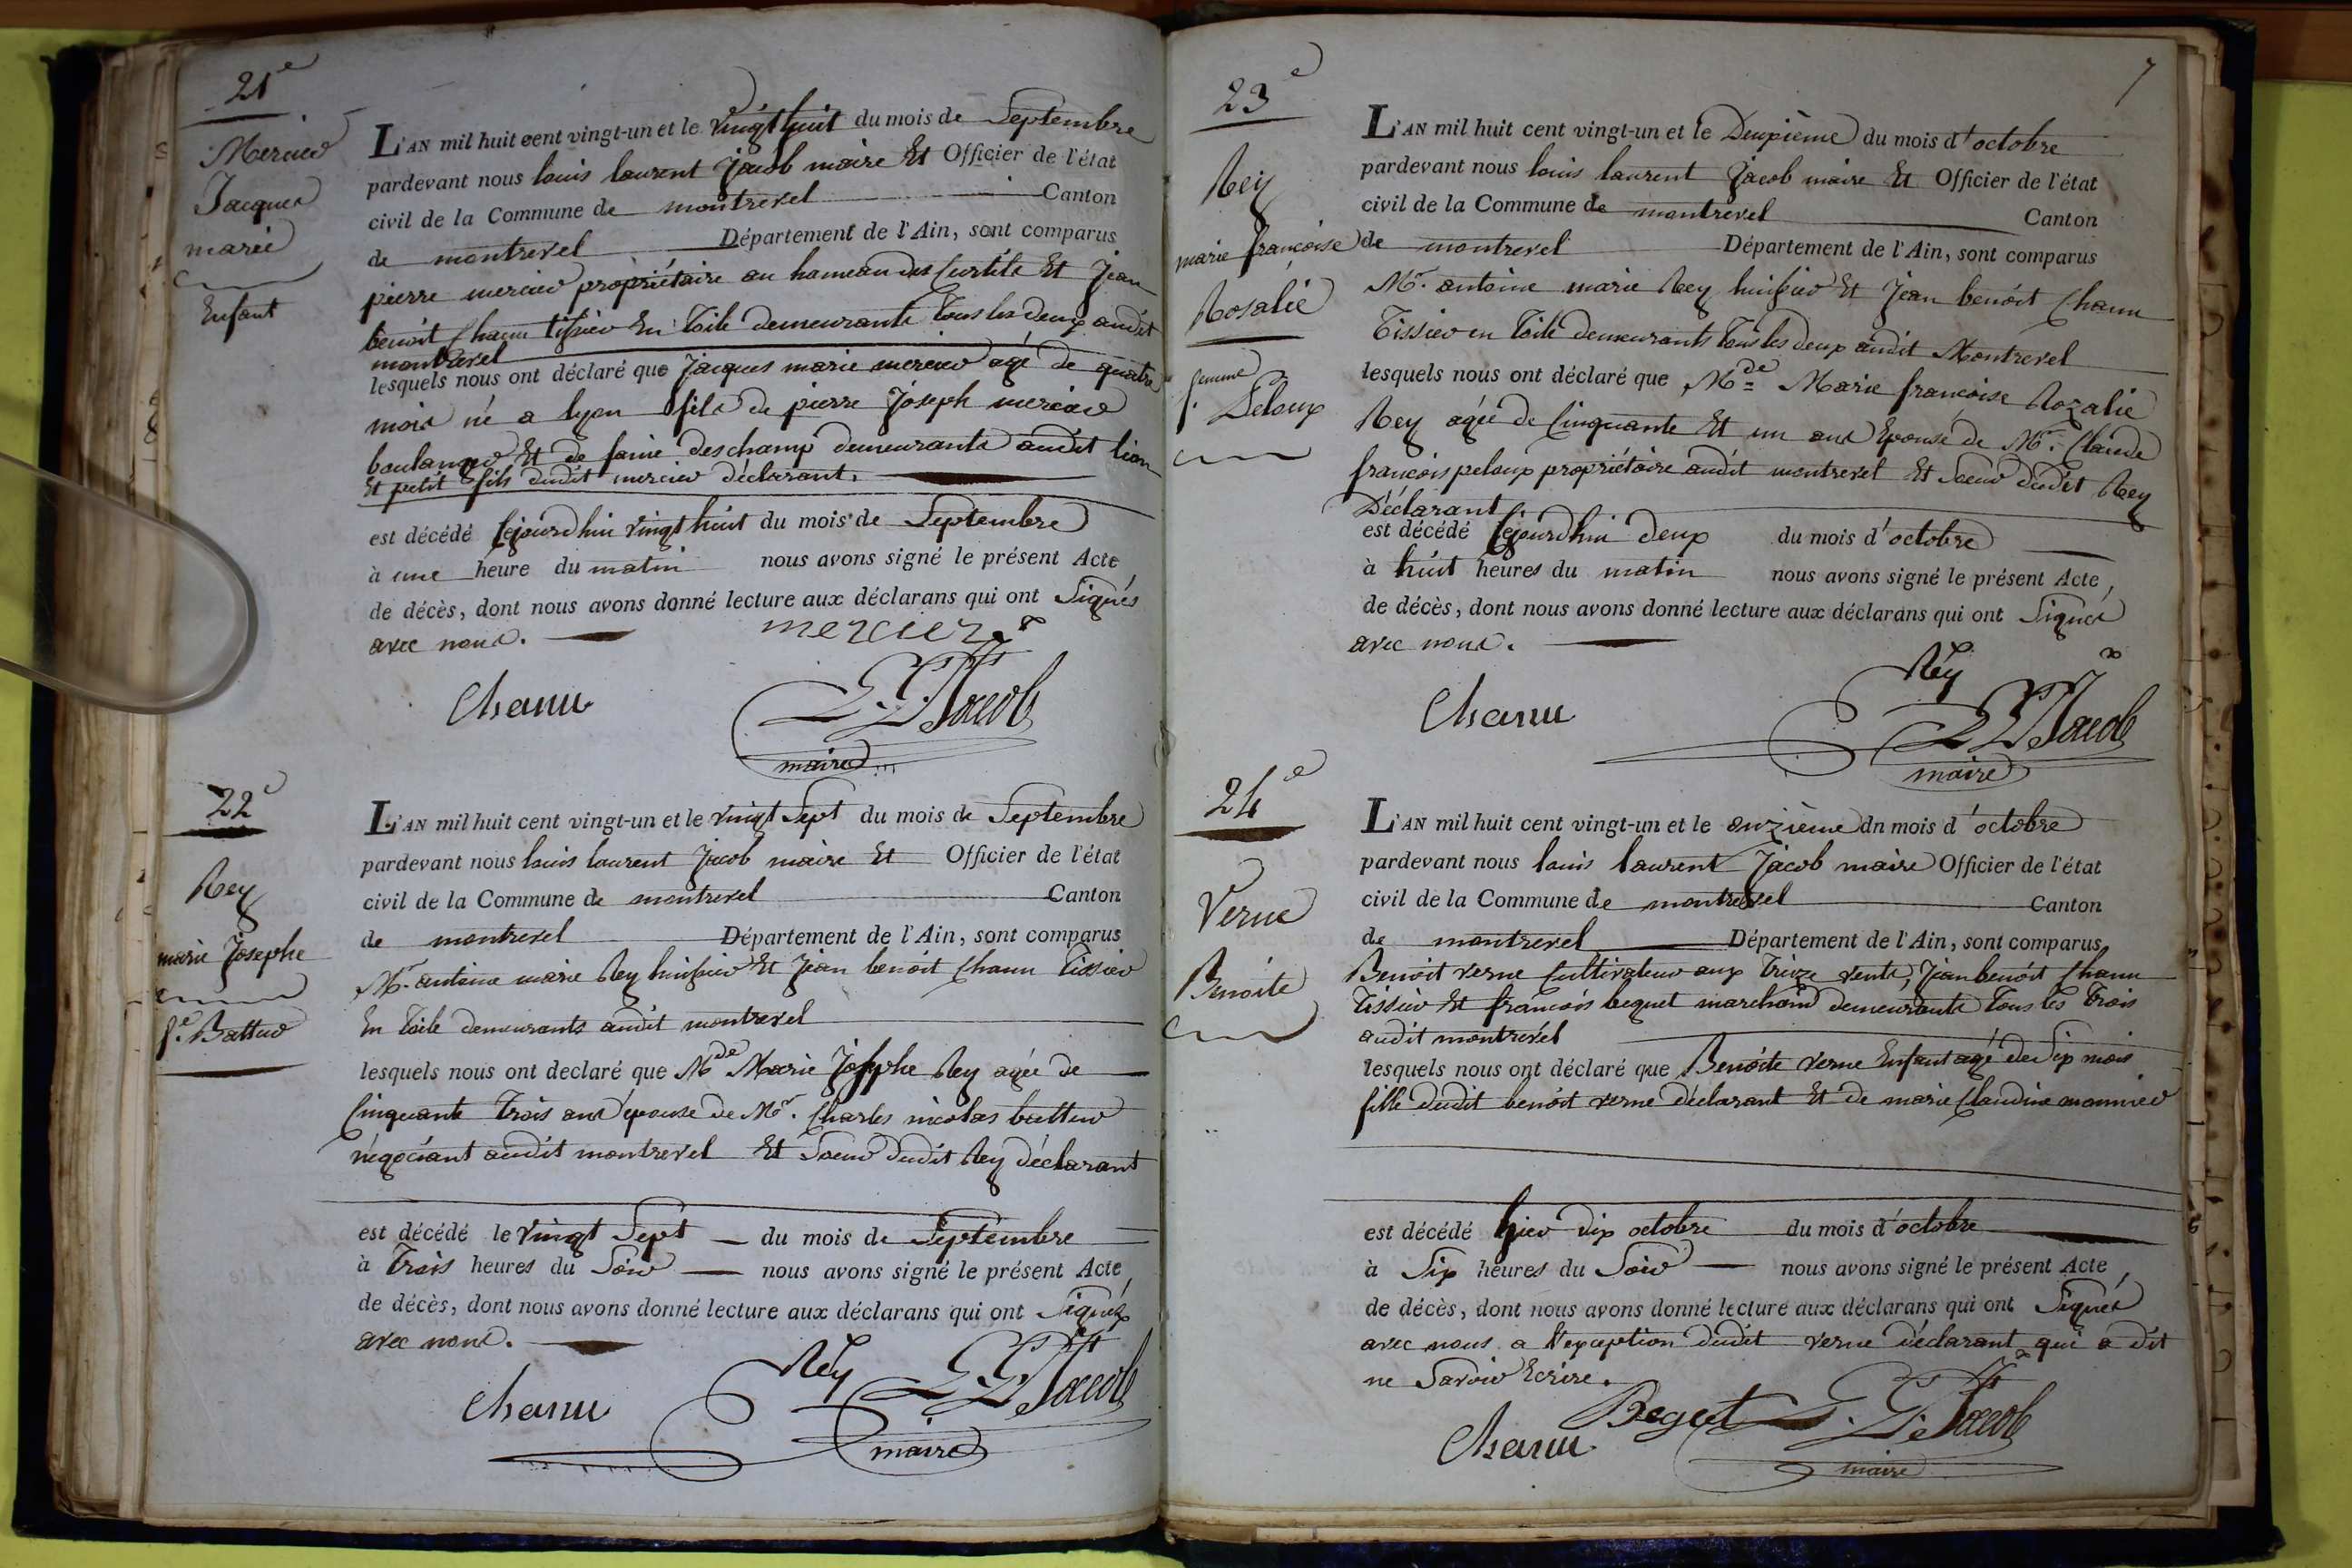 21e
Mercier
Jacques
marie
Enfant
L'AN mil huit cent vingt-un et le vingt huit du mois de Septembre
pardevant nous louis laurent Jacob maire Et Officier de l'état
civil de la Commune de montrevel Canton
de montrevel Département de l'Ain, sont comparus
pierre mercier propriétaire au hameau des Curtils Et Jean
benoit Chanu tissier En toile demeurants tous les deux audit
montrevel
lesquels nous ont déclaré que Jacques marie mercier agé de quatre
mois né a lyon fils de pierre Joseph mercier
boulanger Et de fanie deschamp demeurants audit lion
Et petit fils dudit mercier déclarant.
est décédé Cejourdhui vingt huit du mois de Septembre
à une heure du matin nous avons signé le présent Acte
de décès, dont nous avons donné lecture aux déclarans qui ont Signés
avec nous.
mercier
Chanu
L. L. Jacob
maire
22e
Rey
marie Josephe
fe. Battur
L'AN mil huit cent vingt-un et le vingt Sept du mois de Septembre
pardevant nous louis laurent Jacob maire Et Officier de l'état
civil de la Commune de montrevel Canton
de montrevel Département de l'Ain, sont comparus
Mr. antoine marie Rey huissier Et Jean benoit Chanu Tissier
En toile demeurants audit montrevel
lesquels nous ont declaré que Mde Marie Josephe Rey agée de
Cinquante Trois ans épouse de Mr. Charles nicolas battur
négociant audit montrevel Et Soeur dudit Rey déclarant
est décédé le vingt Sept du mois de Septembre
à Trois heures du Soir nous avons signé le présent Acte
de décès, dont nous avons donné lecture aux déclarans qui ont Signés
avec nous.
Rey
Chanu
L. L. Jacob
maire
7
23e
Rey
marie francoise
Rosalie
femme
Peloux
L'AN mil huit cent vingt-un et le Deuxième du mois d'octobre
pardevant nous louis laurent Jacob maire Et Officier de l'état
civil de la Commune de montrevel Canton
de montrevel Département de l'Ain, sont comparus
Mr. antoine marie Rey huissier Et Jean benoit Chanu
Tissier en toile demeurants tous les deux audit Montrevel
lesquels nous ont déclaré que Mde Marie francoise Rozalie
Rey agée de Cinquante Et un ans Epouse de Mr. Claude
francois peloux propriétaire audit montrevel Et Soeur dudit Rey
Déclarant
est décédé Cejourdhui deux du mois d'octobre
à huit heures du matin nous avons signé le présent Acte,
de décès, dont nous avons donné lecture aux déclarans qui ont Signés
avec nous.
Rey
Chanu
L L Jacob
maire
24e
Verne
Benoite
L'AN mil huit cent vingt-un et le onzième dn mois d'octobre
pardevant nous louis laurent Jacob maire Officier de l'état
civil de la Commune de montrevel Canton
de montrevel Département de l'Ain, sont comparus
Benoit verne Cultivateur aux Treize vents, Jean benoit Chanu
Tissier Et francois bequet marchand demeurants Tous les Trois
audit montrevel
lesquels nous ont déclaré que Benoite verne Enfant agé de Six mois
fille dudit benoit verne déclarant Et de marie Claudine monnier
est décédé hier dix octobre du mois d'octobre
à Six heures du Soir nous avons signé le présent Acte,
de décès, dont nous avons donné lecture aux déclarans qui ont Signés
avec nous a l'exception dudit verne déclarant qui a dit
ne Savoir Ecrire.
Beqeut
Chanu
L. L. Jacob
maire